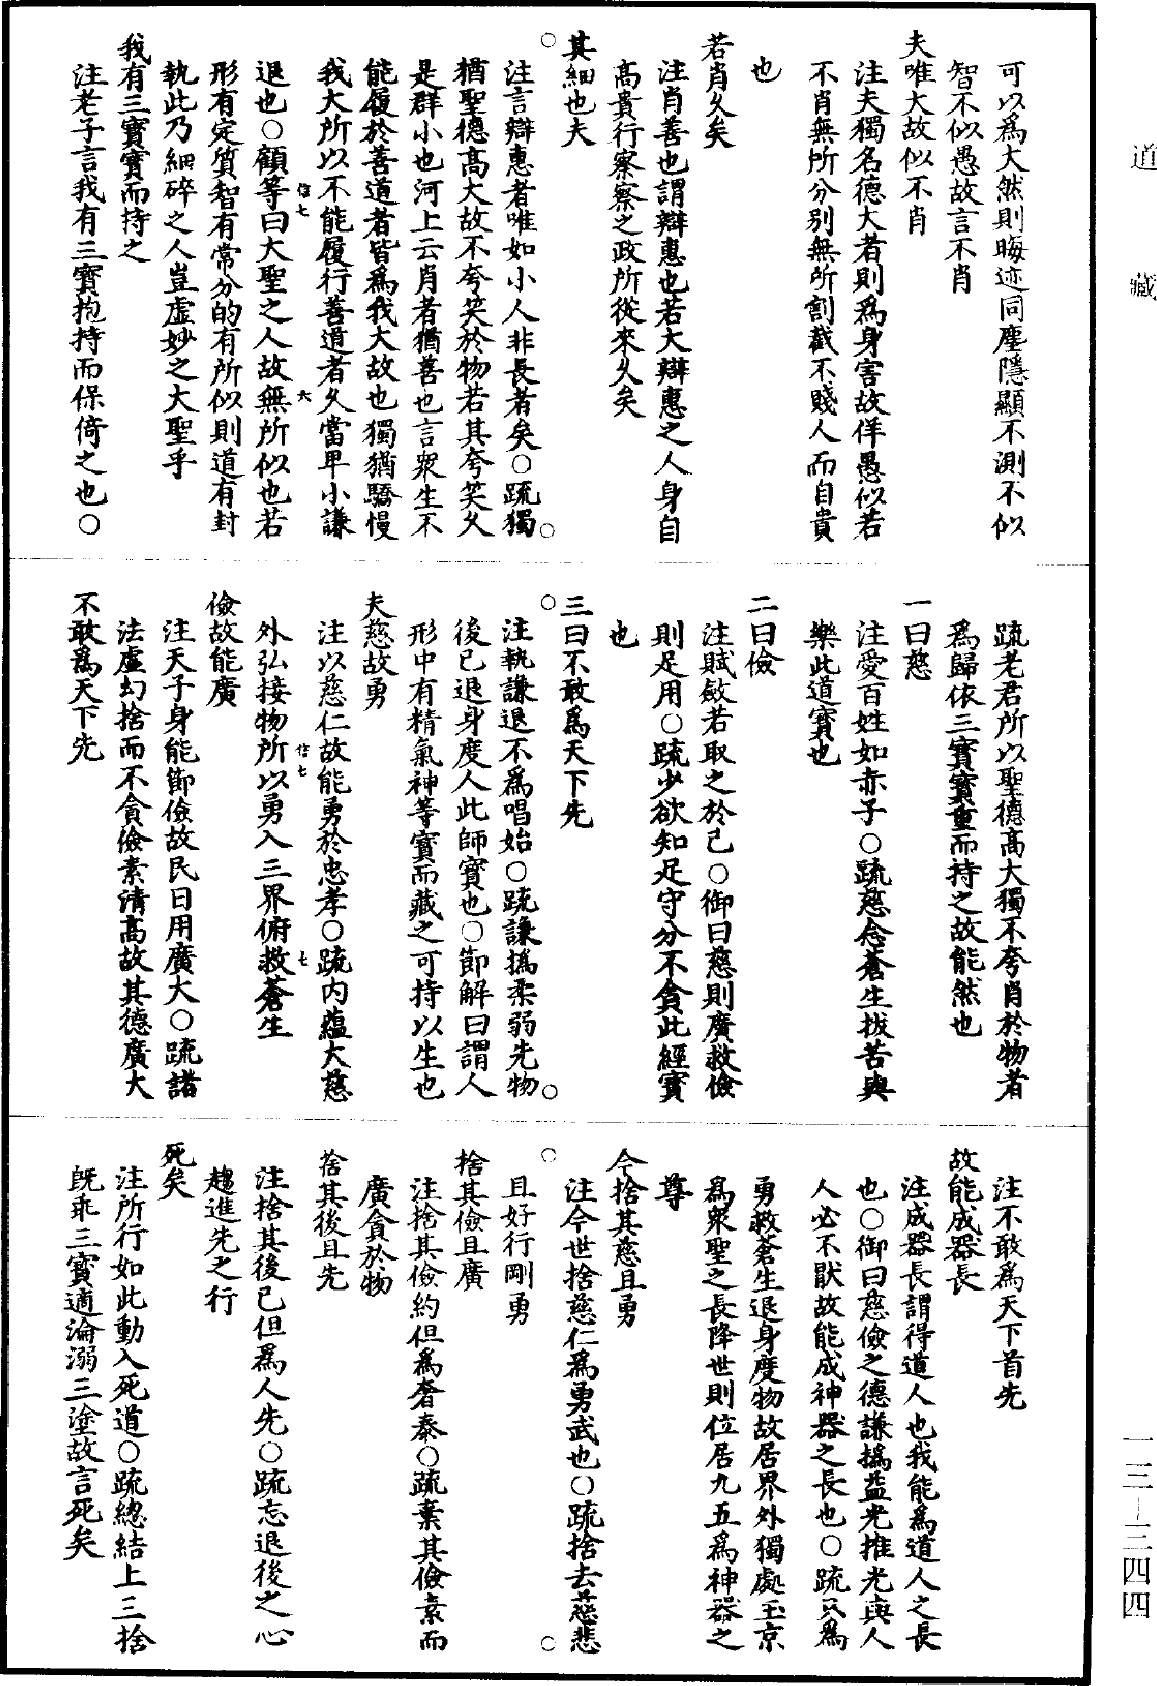 道藏
可以爲大然則晦迹同塵隱顯不測不似
智不似愚故言不肖
夫唯大故似不肖
注夫獨名德大者則爲身害故佯愚似若
不肖無所分别無所割截不賤人而自貴
也
若肖久矣
注肖善也謂辯惠也若大辯惠之人身自
高貴行察察之政所從來久矣
其細也夫
注言辯惠者唯如小人非長者矣○疏獨
猶聖德高大故不夸笑於物若其夸笑久
是群小也河上云肖者猶善也言衆生不
能履於善道者皆爲我大故也獨猶驕慢
我大所以不能履行善道者久當卑小謙
信七 六
退也○顧等曰大聖之人故無所似也若
形有定質智有常分的有所似則道有封
執此乃細碎之人豈虛妙之大聖乎
我有三寶寶而持之
注老子言我有三寶抱持而保倚之也○
疏老君所以聖德高大獨不夸肖於物者
爲歸依三寶寶重而持之故能然也
一曰慈
注愛百姓如赤子○疏慈念蒼生拔苦與
樂此道寶也
二曰儉
注賦斂若取之於己○御曰慈則廣救儉
則足用○疏少欲知足守分不貪此經寶
也
三曰不敢爲天下先
注執謙退不爲唱始○疏謙撝柔弱先物
後己退身度人此師寶也○節解曰謂人
形中有精氣神等寶而藏之可持以生也
夫慈故勇
注以慈仁故能勇於忠孝○疏内蘊大慈
信七 七
外弘接物所以勇入三界俯救蒼生
儉故能廣
注天子身能節儉故民日用廣大○疏諸
法虛幻捨而不貪儉素清高故其德廣大
不敢爲天下先
注不敢爲天下首先
故能成器長
注成器長謂得道人也我能爲道人之長
也○御曰慈儉之德謙撝益光推先與人
人必不猒故能成神器之長也○疏只爲
勇救蒼生退身度物故居界外獨處玉京
爲衆聖之長降世則位居九五爲神器之
尊
今捨其慈且勇
注今世捨慈仁爲勇武也○疏捨去慈悲
且好行剛勇
捨其儉且廣
注捨其儉約但爲奢泰○疏棄其儉素而
廣貪於物
捨其後且先
注捨其後己但爲人先○疏忘退後之心
趨進先之行
死矣
注所行如此動入死道○疏總結上三捨
既乖三寶適淪溺三塗故言死矣
一三—三四四